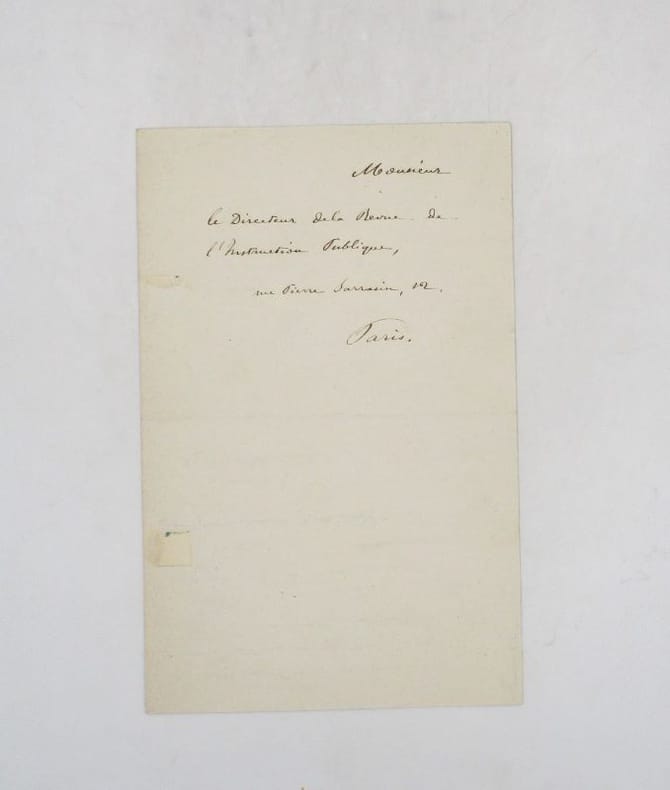 Monsieur
le Directeur de la Revue de
l'Instruction Publique,
rue Pierre Sarrasin, 12.
Paris.